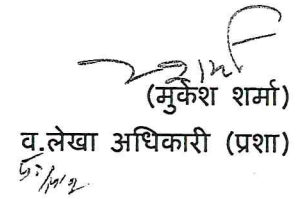 (मुकेश शर्मा)
व.लेखा अधिकारी (प्रशा)